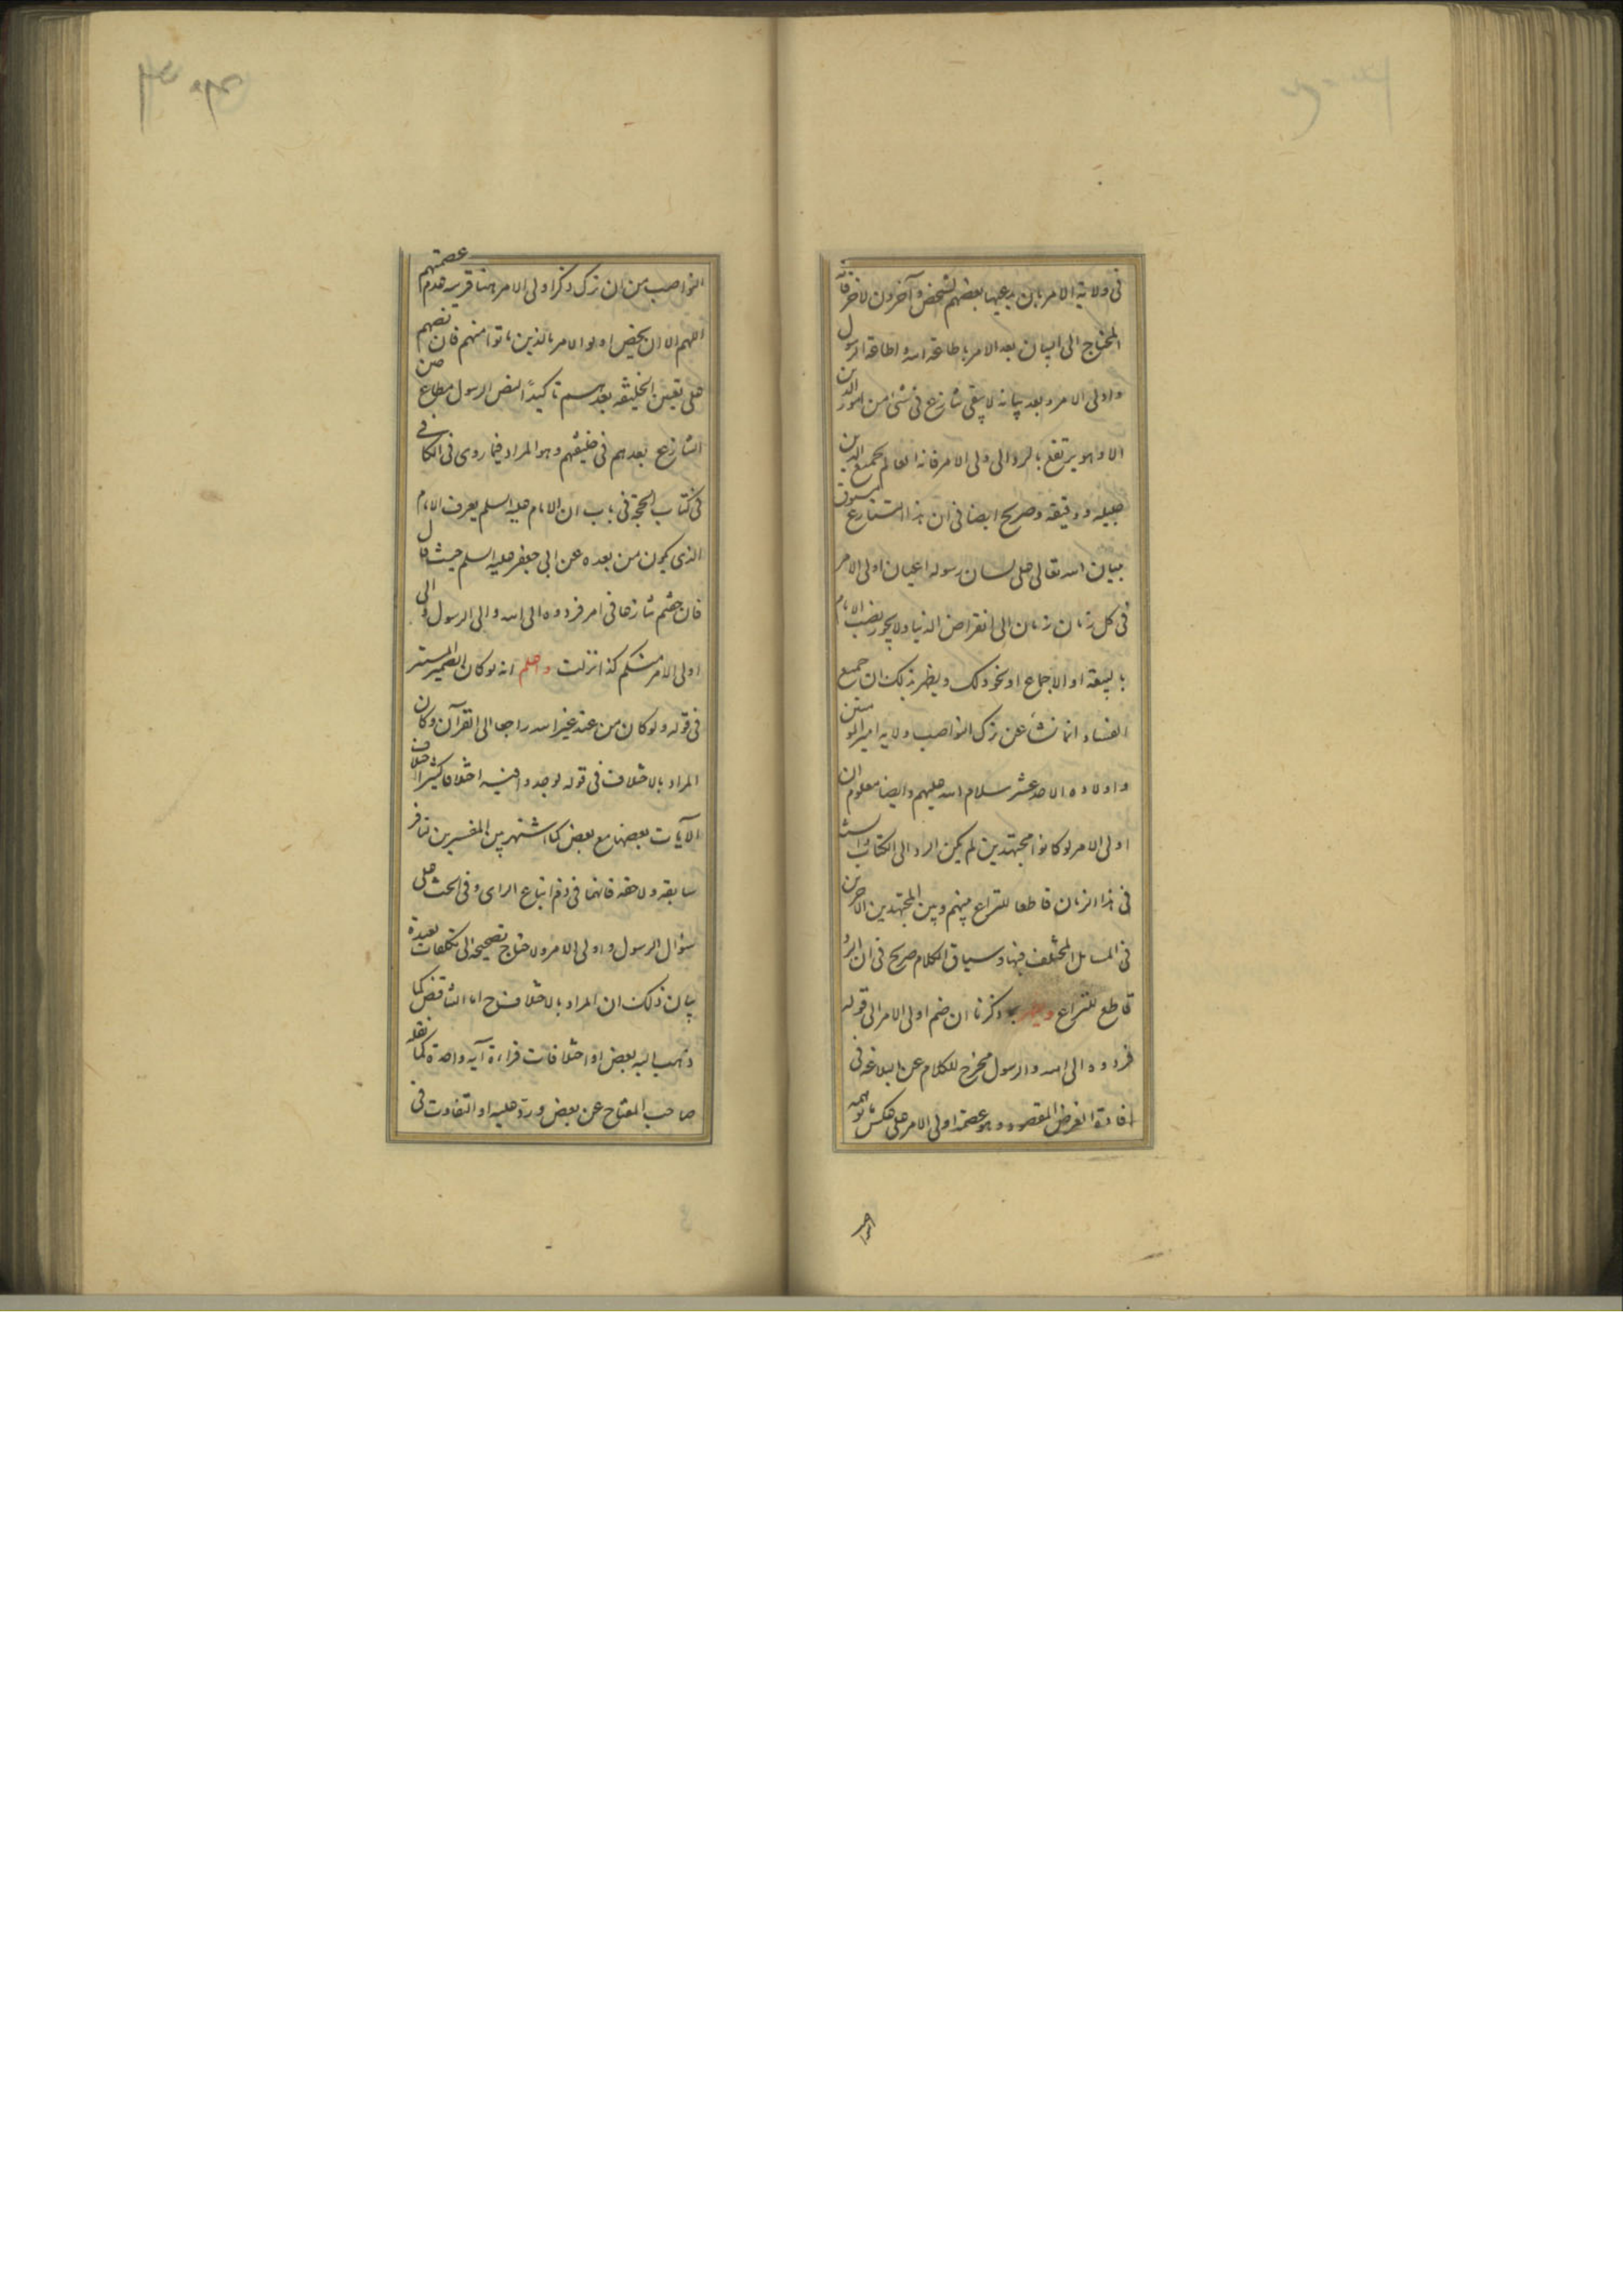 فى ولاية الامر بان يدعيها بعضهم لشخص وآخرون لآخر فانه
المحتاج الى البيان بعد الامر باطاعة الله واطاعة الرسول
واولى الامر وبعد بيانه لا يبقى تنازع فى شئ من امور الدين
الا وهو يرتفع بالرد الى ولى الامر فانه العالم بجميع الدين
جليله ودقيقه وصريح ايضا فى ان هذا التنازع مسبوق
ببيان الله تعالى على لسان رسوله اعيان اولى الامر
فى كل زمان زمان الى انقراض الدنيا ولا يجوز نصب الامام
بالبيعة او الاجماع او نحو ذلك ويظهر بذلك ان جميع
الفساد انما نشأ عن ترك النواصب ولاية امير المومنين
واولاده الاحد عشر سلام الله عليهم وايضا معلوم ان
اولى الامر لو كانوا مجتهدين لم يكن الرد الى الكتاب والسنة
فى هذا الزمان قاطعا للنزاع بينهم وبين المجتهدين الآخرين
فى المسائل المختلف فيها وسياق الكلام صريح فى ان الرد
قاطع للنزاع ويظهر بما ذكرنا ان ضم اولى الامر الى قوله
فردوه الى الله والرسول مخرج للكلام عن البلاغة فى
افادة الغرض المقصود وهو عصمة اولى الامر على عكس ما توهمه
النواصب من ان ترك ذكر اولى الامر هنا قرينة عدم عصمتهم
اللهم الا ان يخص اولو الامر بالذين ماتوا منهم فان نصهم
على تعيين الخليفة بعدهم تأكيدا لنص الرسول مطاع
التنازع بعدهم فى خليفتهم وهو المراد فيما روى فى الكافى
فى كتاب الحجة فى باب ان الامام عليه السلم يعرف الامام
الذى يكون من بعده عن ابى جعفر عليه السلم حيث قال
فان خفتم تنازعا فى امر فردوه الى الله والى الرسول والى
اولى الامر منكم كذا نزلت واعلم انه لو كان الضمير المستتر
فى قوله ولو كان من عند غير الله راجعا الى القرآن وكان
المراد بالاختلاف فى قوله لوجدوا فيه اختلافا كثيرا اختلاف
الآيات بعضها مع بعض كما اشتهر بين المفسرين تنافر
سابقه ولاحقه فانهما فى ذم اتباع الراى وفى الحث على
سؤال الرسول واولى الامر ولاحتاج تصحيحه الى تكلفات بعيدة
بيان ذلك ان المراد بالاختلاف ح اما التناقض كما
ذهب اليه بعض او اختلافات قراءة آية واحدة كما نقله
صاحب المفتاح عن بعض ورد عليه او التفاوت فى